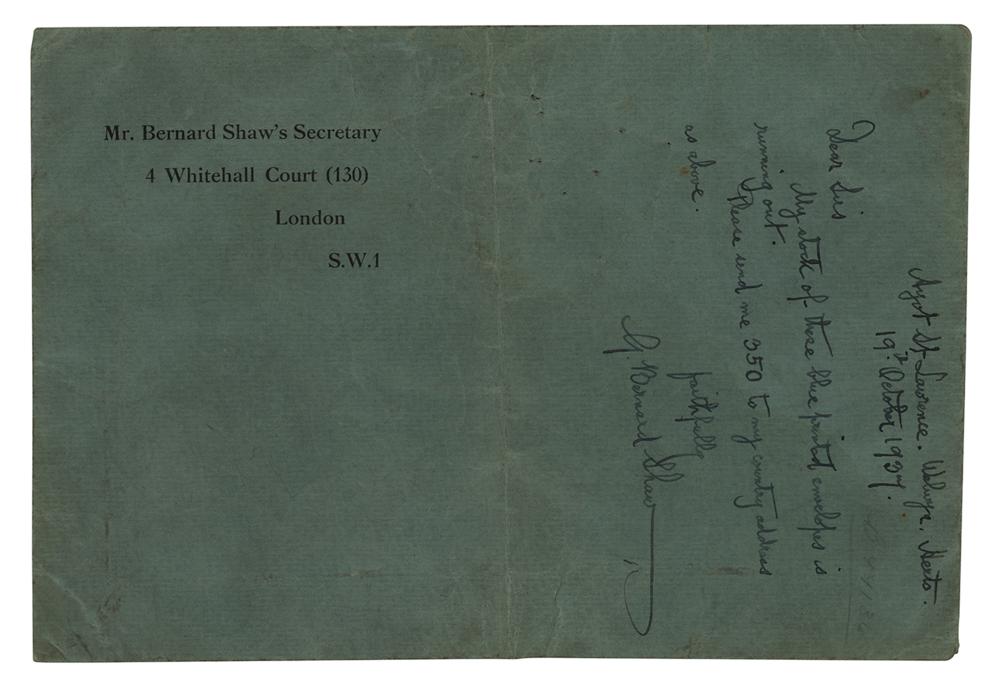 Mr. Bernard Shaw's Secretary
4 Whitehall Court (130)
London
S.W.1
Ayot St Lawrence. Welwyn. Herts.
19th October 1937.
Dear Sirs
My stock of these blue printed envelopes is
running out.
Please send me 350 to my country address
as above.
faithfully
G. Bernard Shaw